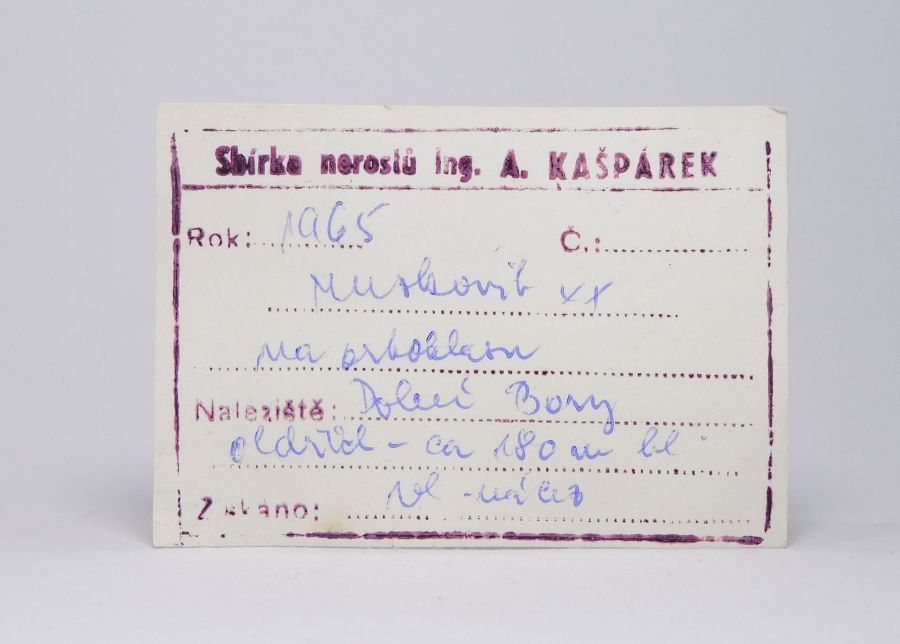 Sbírka nerostů Ing. A. KAŠPÁREK
Rok: 1965 Č.:
Muskovit xx
na ortoklasu
Naleziště: Dolní Bory
Oldřich - ca 180 m hl.
Získáno: vl. nález